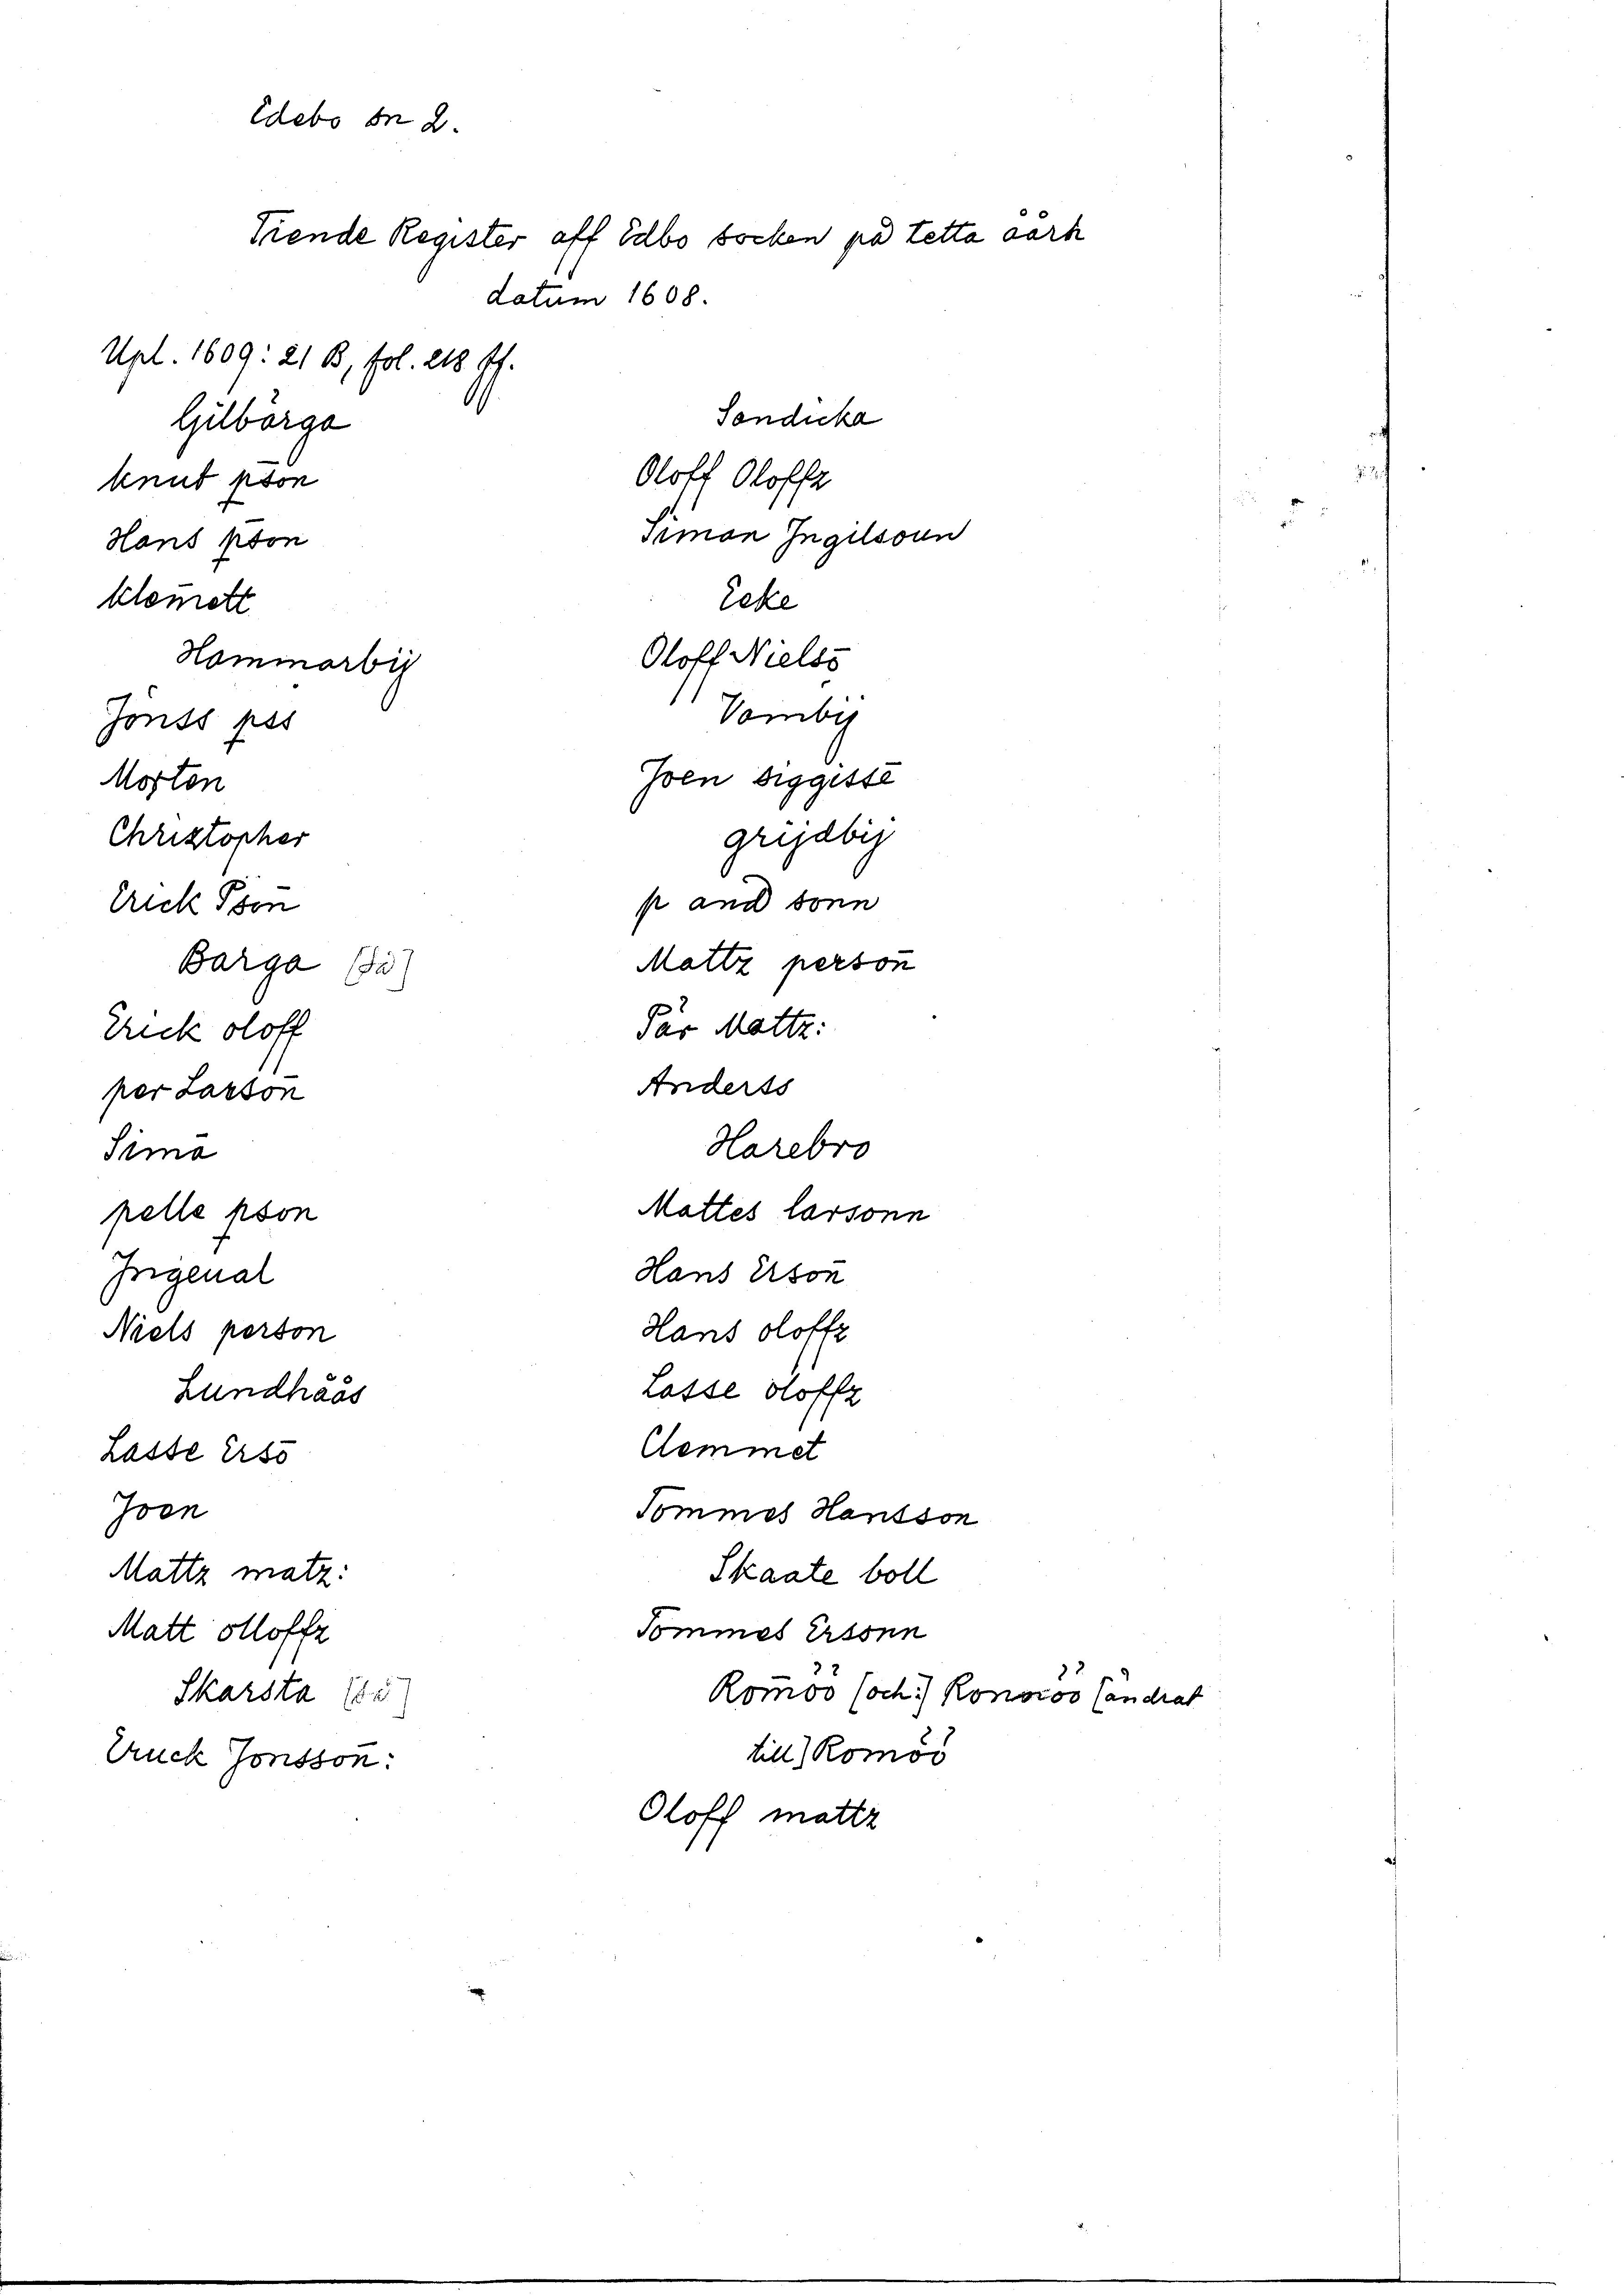 Edebo sn 2.
Tiende Register aff Edbo socken på tetta åårh
datum 1608.
Upl. 1609: 21 B, fol. 218 ff.
Gilbärga
knut pson
Hans pson
klemett
Hammarbij
Jönss pss
Morten
Christopher
Erick Pson
Barga (så)
Erick oloff
per Larson
Simā
pelle pson
Jngeual
Niels person
Lundhåås
Lasse Ersō
Joen
Mattz matz:
Matt olloffz
Skarsta (så)
Eruck Jonsson:
Sandicka
Oloff Oloffz
Simon Jngilsoun
Eeke
Oloff Nielsō
Vambij
Joen siggissē
grijdbij
p and sonn
Mattz person̄
Pär Mattz:
Anderss
Harebro
Mattes larsonn
Hans Erson̄
Hans oloffz
Lasse oloffz
Clemmet
Tommes Hansson
Skaate boll
Tommes Ersonn
Romöö (och:) (ändrat
till) Romöö
Oloff mattz